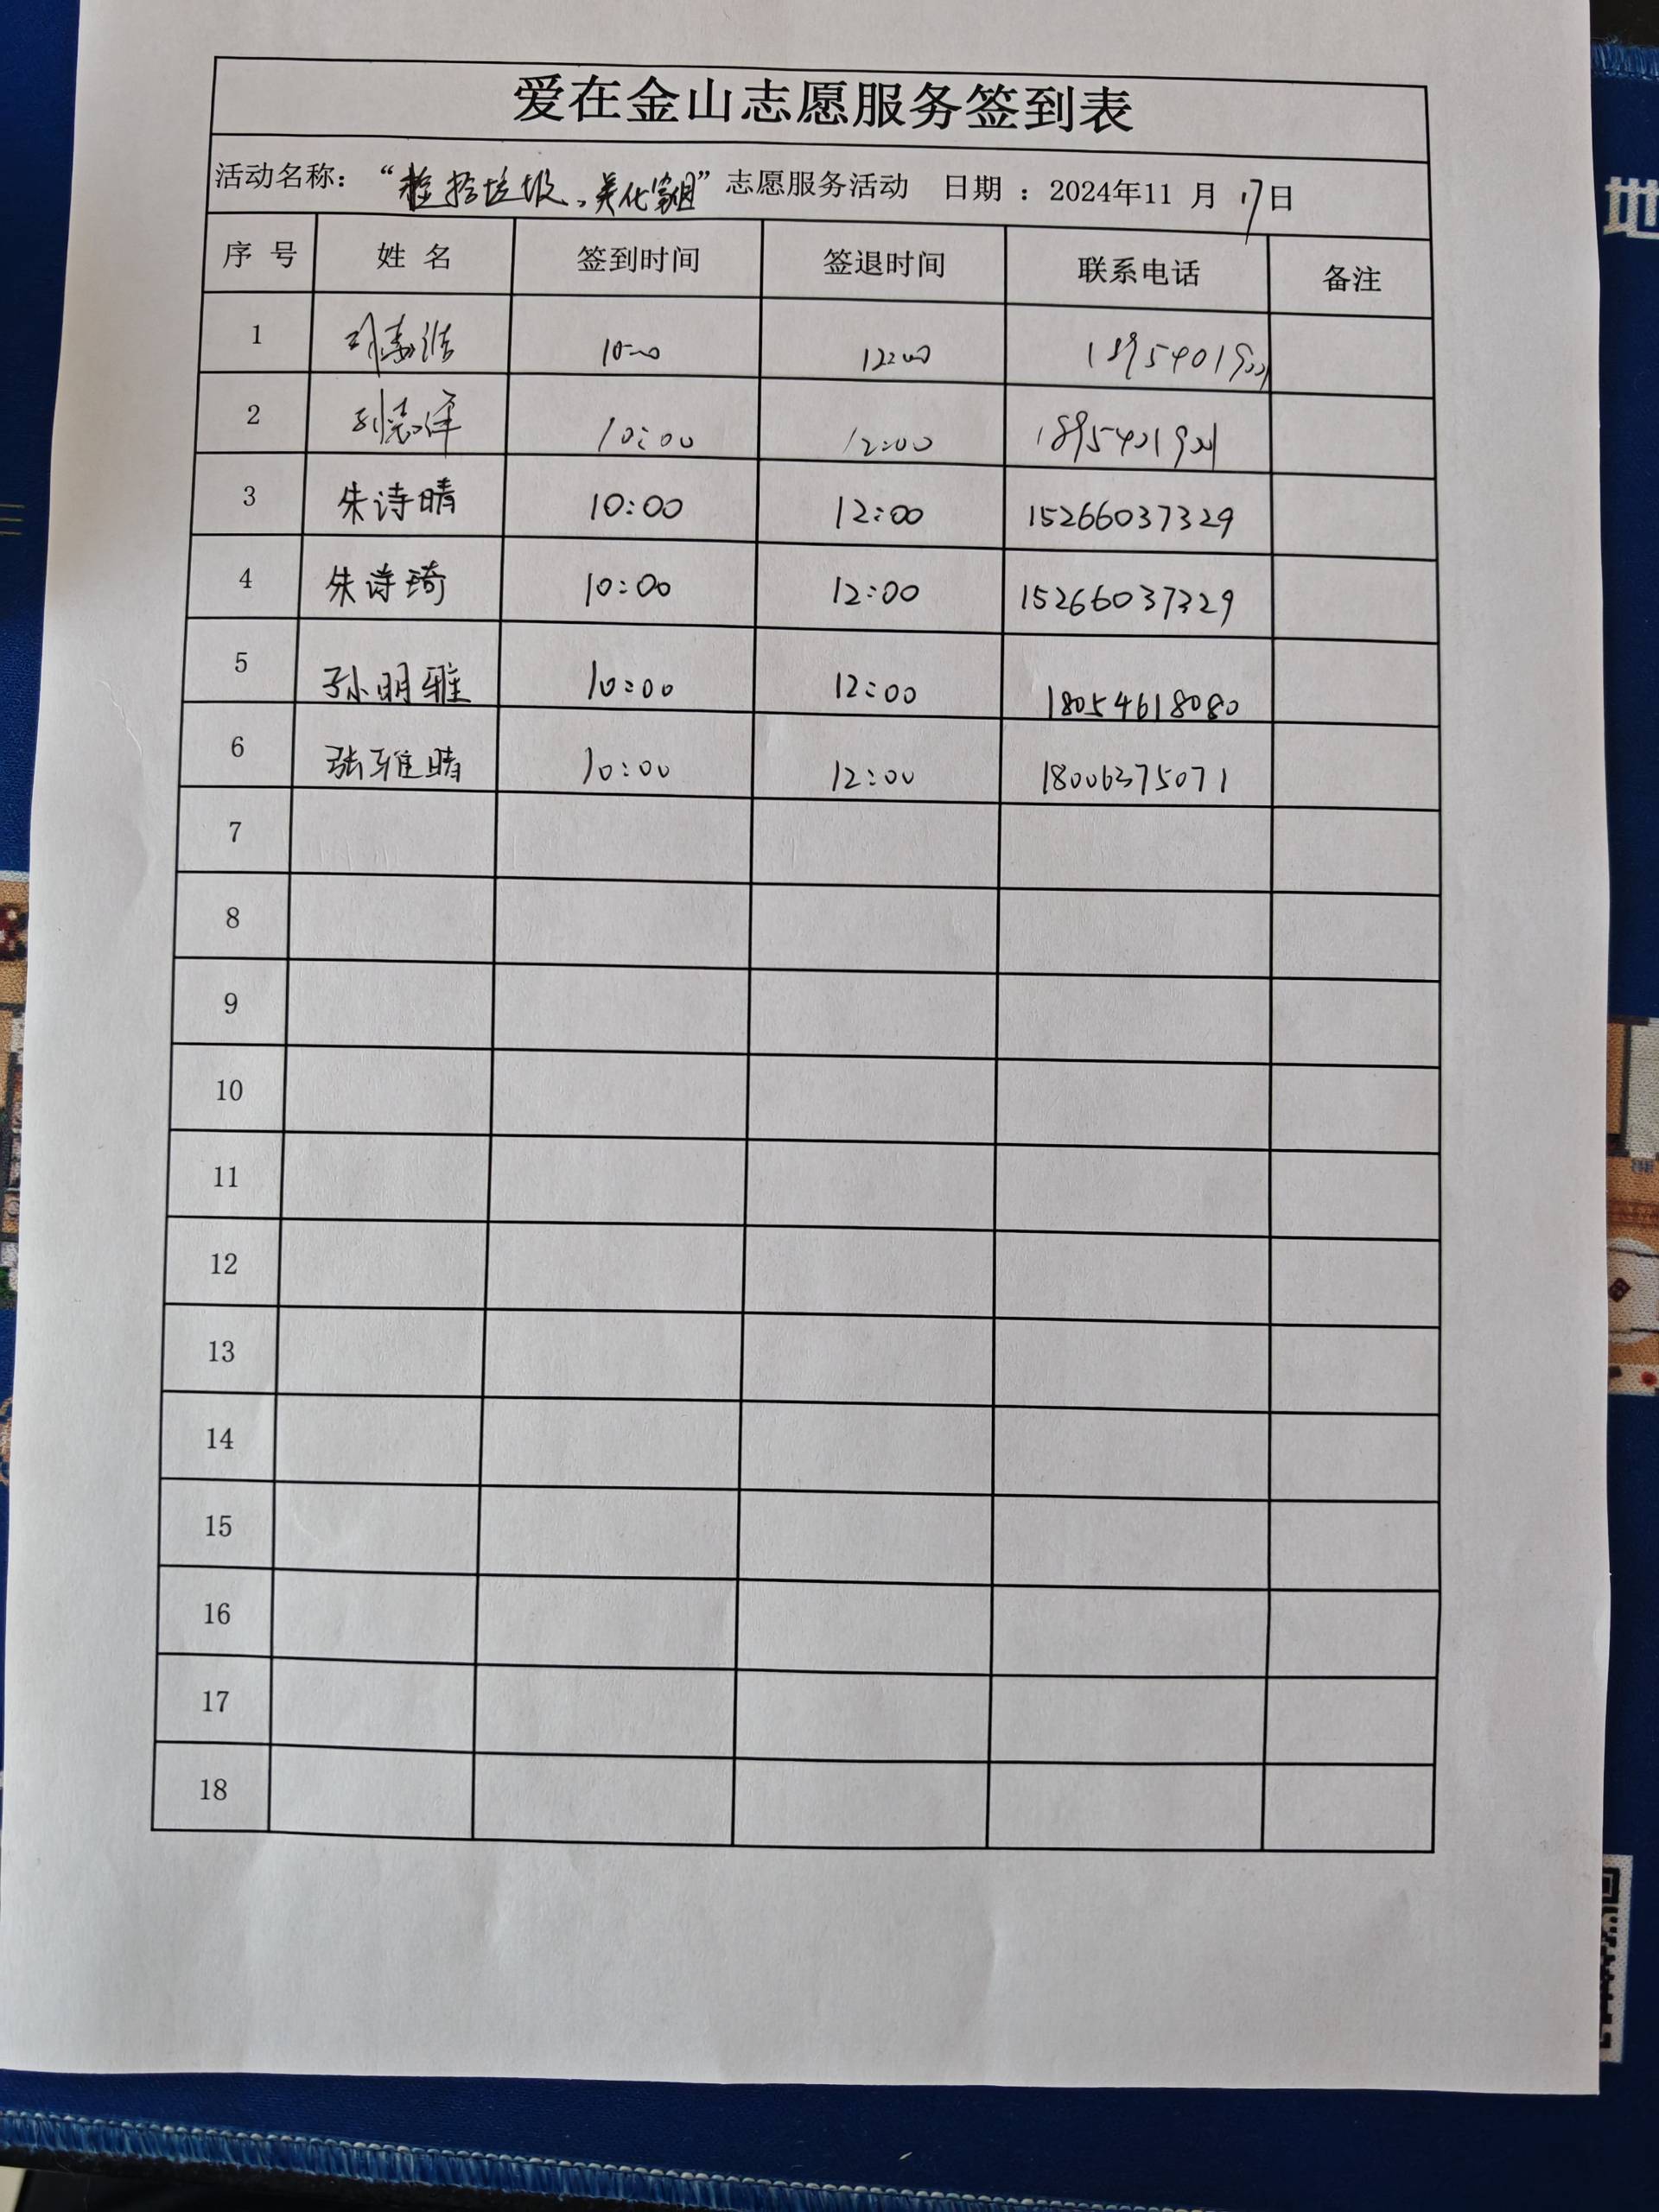 爱在金山志愿服务签到表
活动名称：“捡拾垃圾，美化家园”志愿服务活动 日期：2024年11月17日
序号 姓名 签到时间 签退时间 联系电话 备注
1 10:00 12:00
2 10:00 12:00
3 朱诗晴 10:00 12:00 15266037329
4 朱诗琦 10:00 12:00 15266037329
5 孙明雅 10:00 12:00 18054618080
6 张雅晴 10:00 12:00 18006375071
7
8
9
10
11
12
13
14
15
16
17
18
地